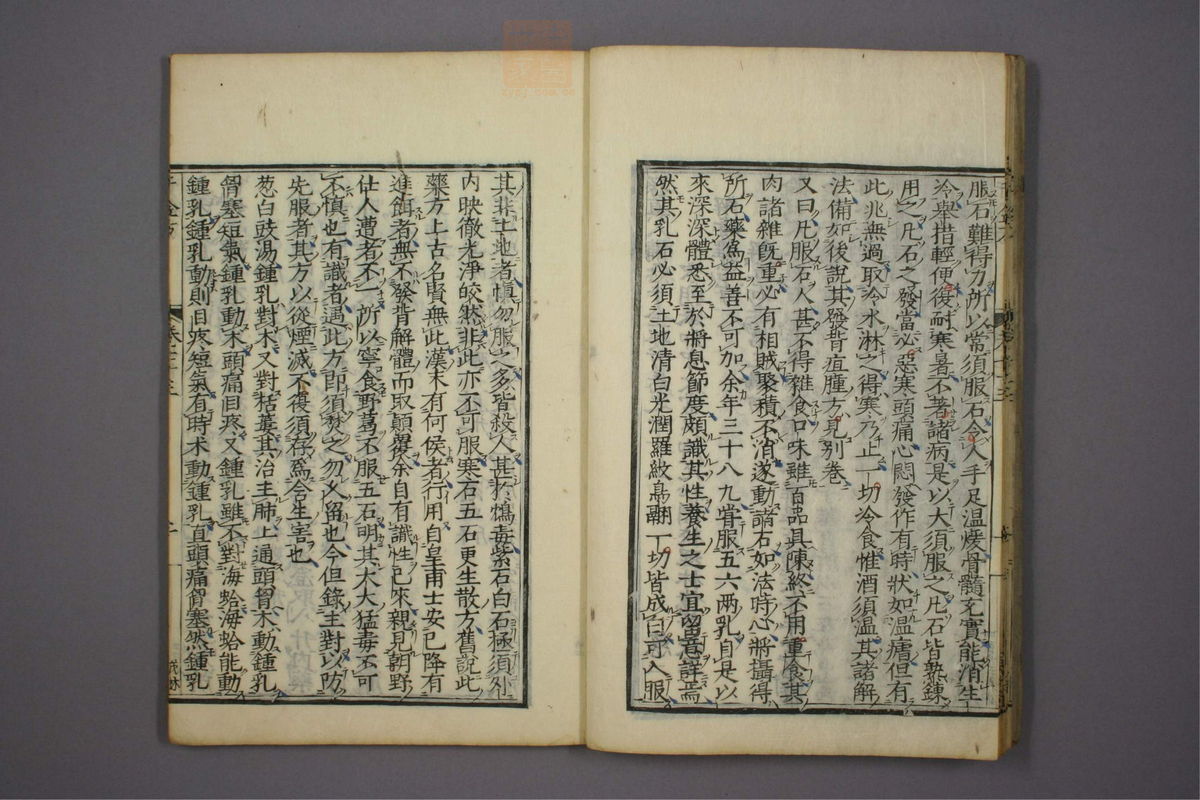 服石難得力所以常須服石令人手足温煖骨髓充實能消生
冷舉措輕便復耐寒暑不著諸病是以大須服之凡石皆熟錬
用之凡石之發當必惡寒頭痛心悶發作有時狀如温瘧但有
此兆無過取冷水淋之得寒乃止一切冷食惟酒須温其諸解
法備如後說其發背疽腫方見別卷
又曰凡服石人甚不得雜食口味雖百品具陳終不用重食其
肉諸雜旣重必有相賊聚積不消遂動諸石如法時心將攝得
所石藥爲益善不可加余年三十八九嘗服五六兩乳自是以
來深深體悉至於將息節度頗識其性養生之士宜留意詳焉
然其乳石必須土地清白光潤羅紋鳥翮一切皆成白可入服
其非土地者慎勿服之多皆殺人甚於鴆毒紫石白石極須外
内映徹光淨皎然非此亦不可服寒石五石更生散方舊說此
藥方上古名賢無此漢末有何侯者行用自皇甫士安已降有
進餌者無不發背解體而取顛覆余自有識性已來親見朝野
仕人遭者不一所以寧食野葛不服五石明其大大猛毒不可
不慎也有識者遇此方即須焚之勿久留也今但錄主對以防
先服者其方以從煙滅不復須存爲含生害也
葱白豉湯鍾乳對术又對栝蔞其治主肺上通頭胷术動鍾乳
胷塞短氣鍾乳動术頭痛目疼又鍾乳雖不對海蛤海蛤能動
鍾乳鍾乳動則目疼短氣有時术動鍾乳直頭痛胷塞然鍾乳